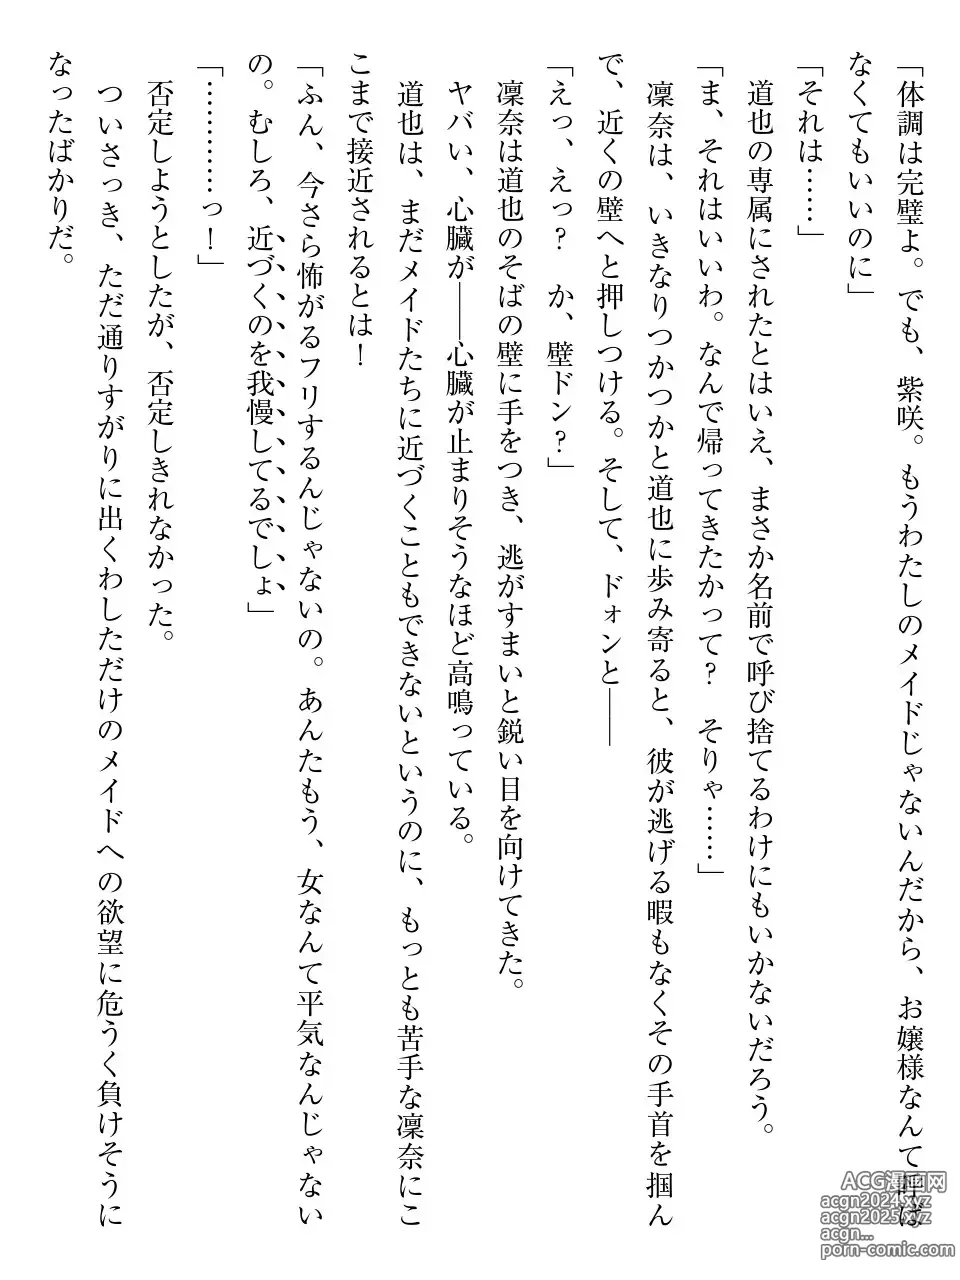 「体調は完璧よ。でも、紫咲。もうわたしのメイドじゃないんだから、お嬢様なんて呼ば
なくてもいいのに」
「それは……」
道也の専属にされたとはいえ、まさか名前で呼び捨てるわけにもいかないだろう。
「ま、それはいいわ。なんで帰ってきたかって？　そりゃ……」
凜奈は、いきなりつかつかと道也に歩み寄ると、彼が逃げる暇もなくその手首を掴ん
で、近くの壁へと押しつける。そして、ドォンと――
「えっ、えっ？　か、壁ドン？」
凜奈は道也のそばの壁に手をつき、逃がすまいと鋭い目を向けてきた。
ヤバい、心臓が――心臓が止まりそうなほど高鳴っている。
道也は、まだメイドたちに近づくこともできないというのに、もっとも苦手な凜奈にこ
こまで接近されるとは！
「ふん、今さら怖がるフリするんじゃないの。あんたもう、女なんて平気なんじゃない
の。むしろ、近づくのを我慢してるでしょ」
「…………っ！」
否定しようとしたが、否定しきれなかった。
ついさっき、ただ通りすがりに出くわしただけのメイドへの欲望に危うく負けそうに
なったばかりだ。
ACG漫画网
acgn2024.xyz
acgn2025.xyz
acgn...
porn-comic.com